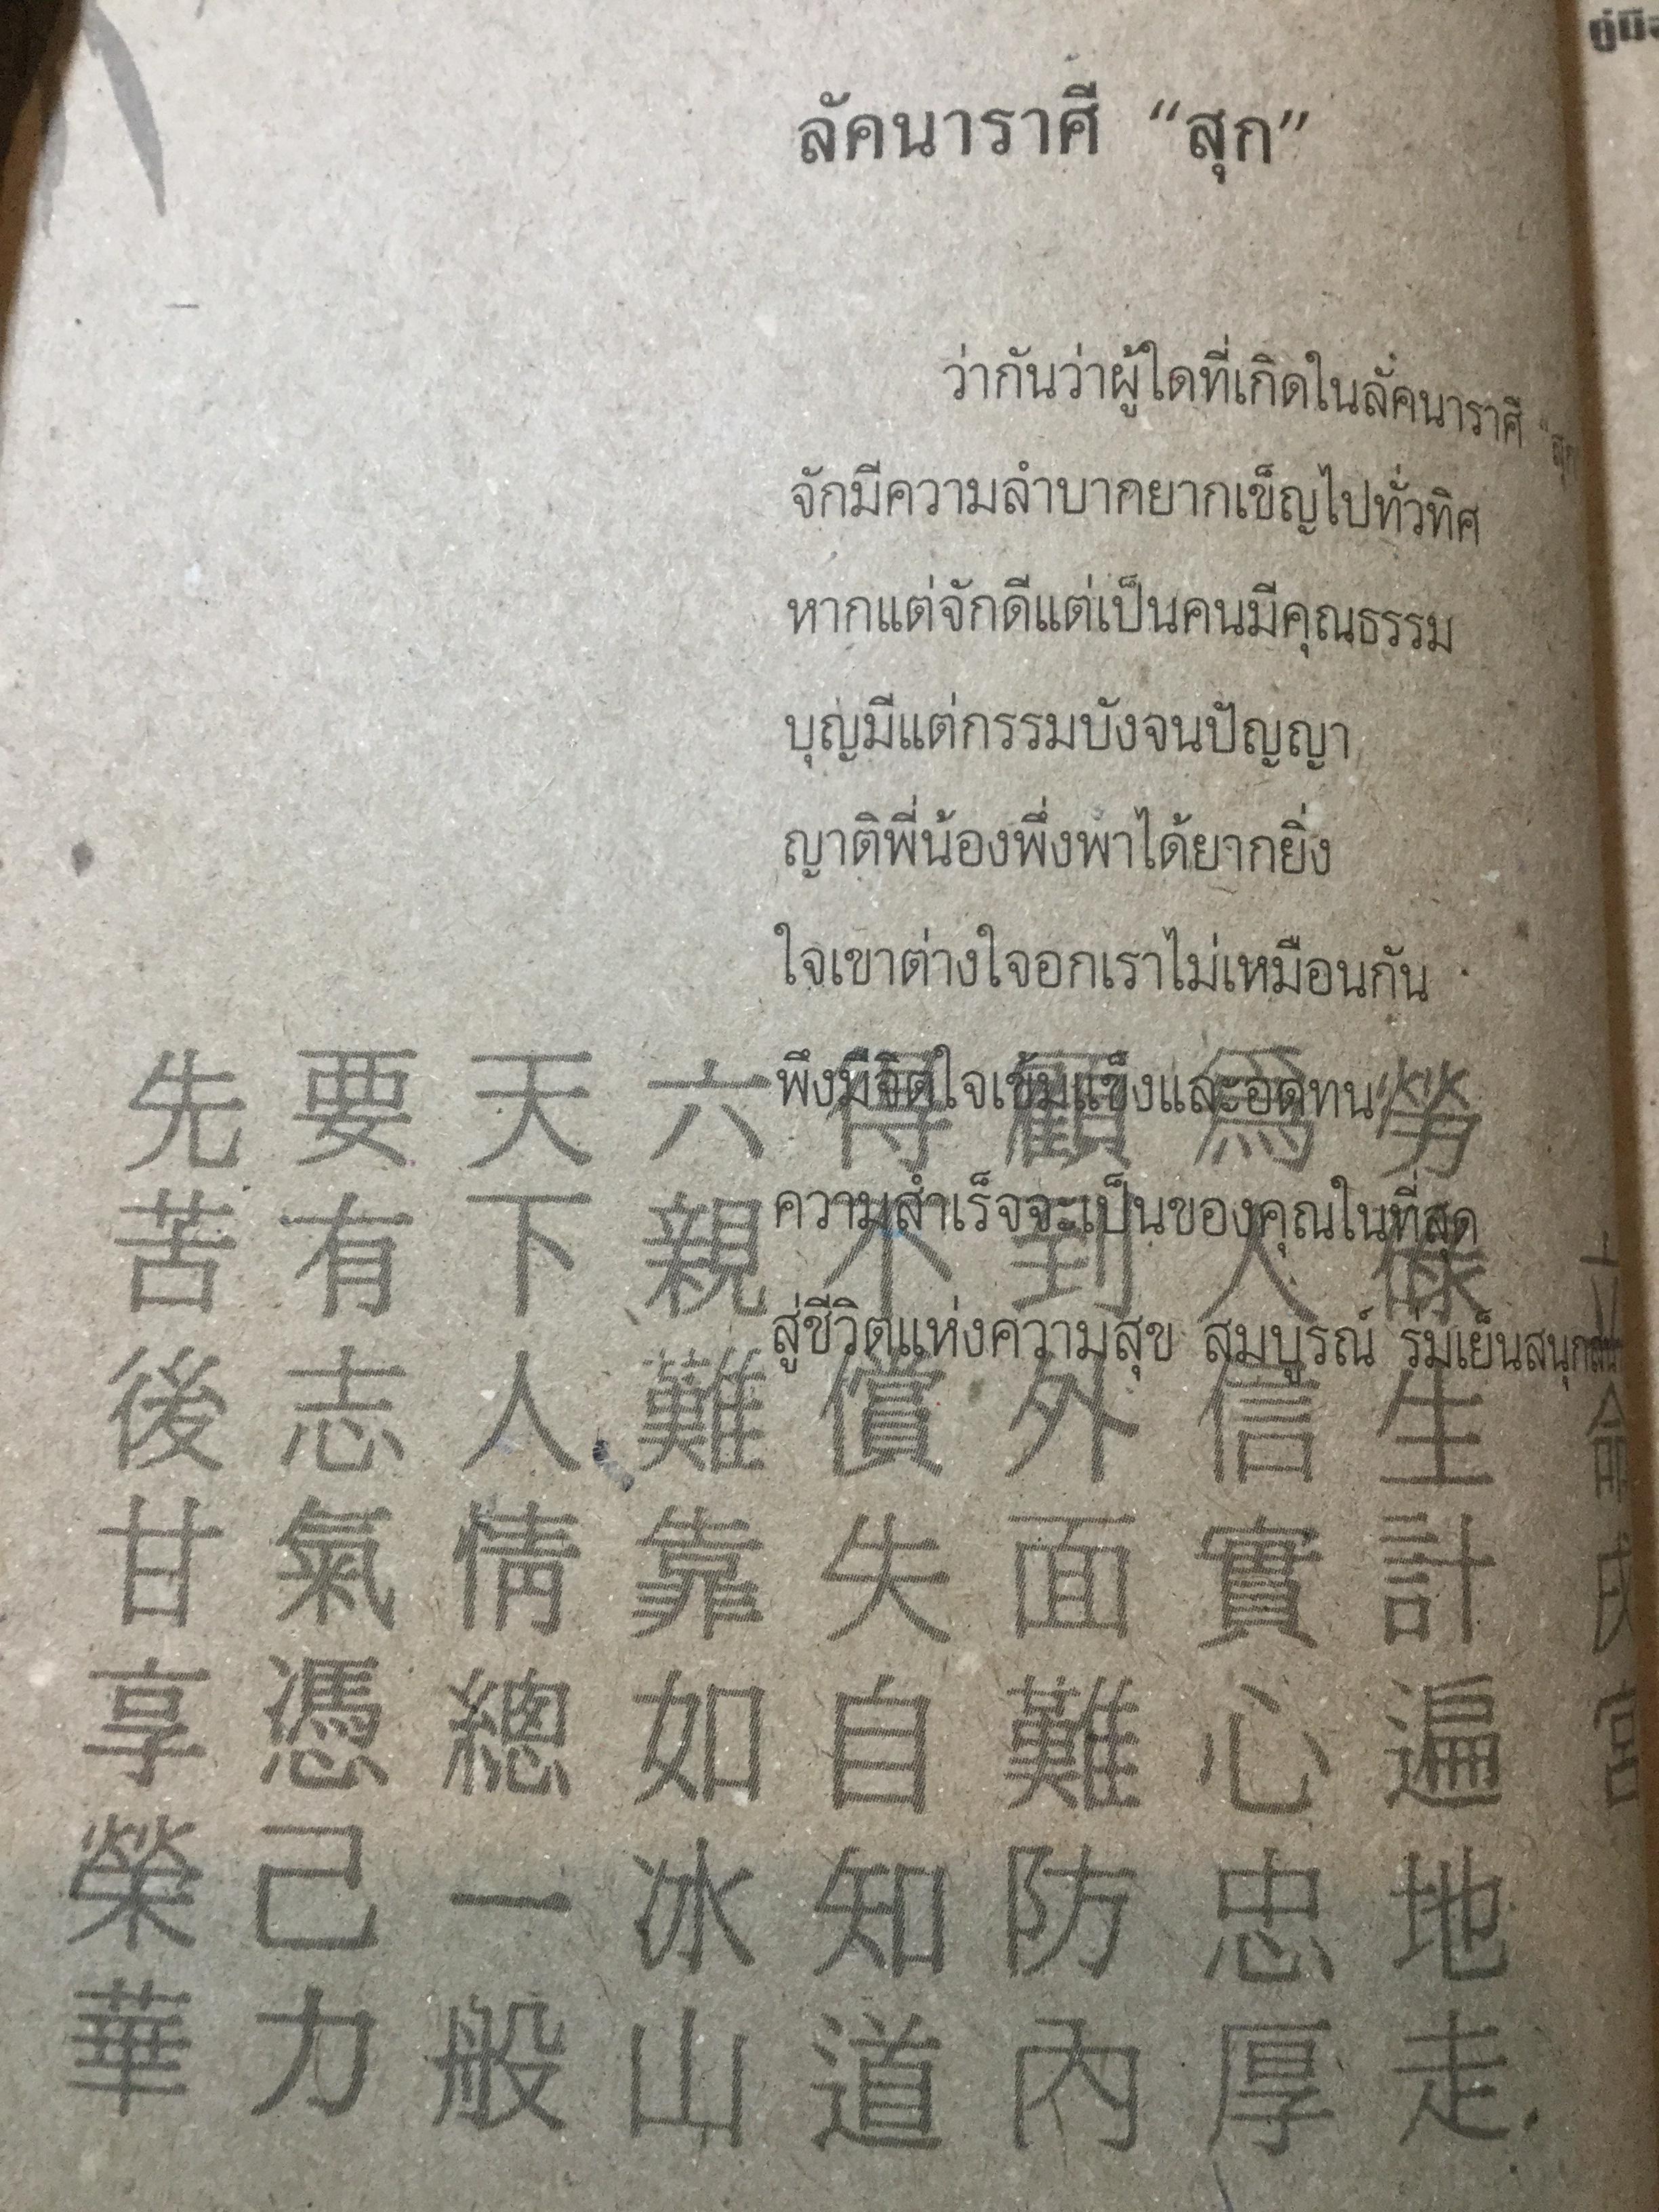 ลัคนาราศี “สุก”
ว่ากันว่าผู้ใดที่เกิดในลัคนาราศี “สุก
จักมีความลำบากยากเข็ญไปทั่วทิศ
หากแต่จักดีแต่เป็นคนมีคุณธรรม
บุญมีแต่กรรมบังจนปัญญา
ญาติพี่น้องพึ่งพาได้ยากยิ่ง
ใจเขาต่างใจอกเราไม่เหมือนกัน
พึงมีจิตใจเข้มแข็งและอดทน
ความสำเร็จจะเป็นของคุณในที่สุด
สู่ชีวิตแห่งความสุข สมบูรณ์ ร่มเย็นสนุกสนาน
立命戌宮
勞碌生計遍地走
為人信實心忠厚
顧到外面難防內
得不償失自知道
六親難靠如冰山
天下人情總一般
要有志氣憑己力
先苦後甘享榮華